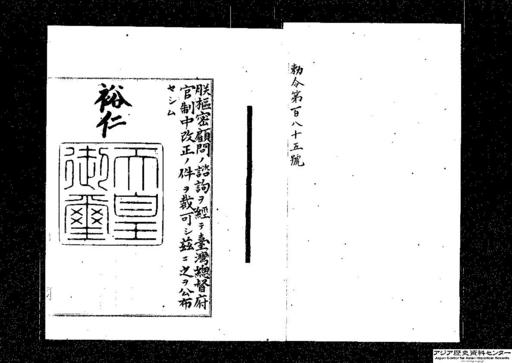 勅令第百八十五號
朕樞密顧問ノ諮詢ヲ經テ臺灣總督府
官制中改正ノ件ヲ裁可シ茲ニ之ヲ公布
セシム
裕仁
天皇
御璽
アジア歴史資料センター
Japan Center for Asian Historical Records